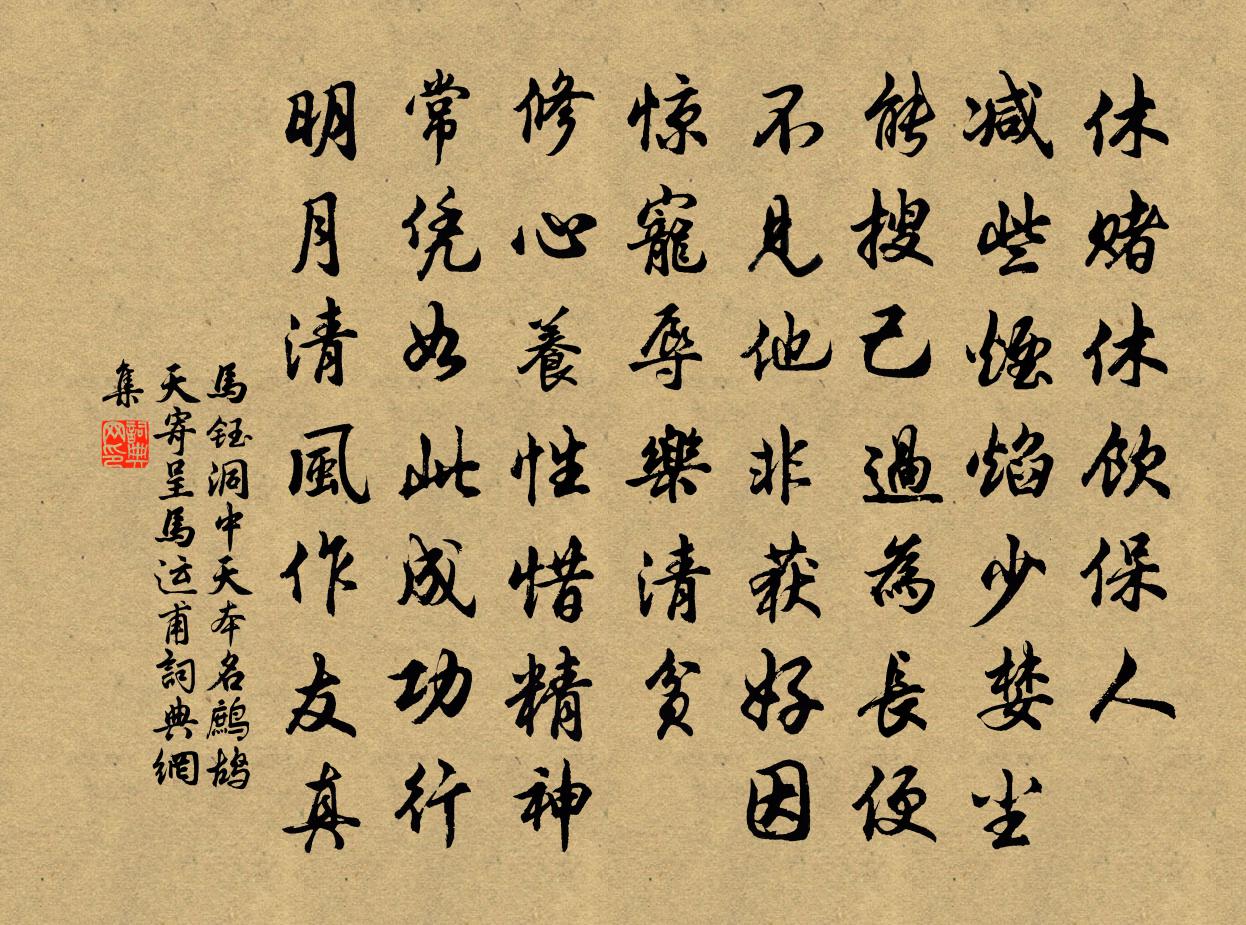 休赌休饮保人
减些烟焰少婪尘
能搜己過為長便
不見他非获好因
惊寵辱樂清貧
修心養性惜精神
常凭如此成功行
明月清風作友真
馬鈺洞中天本名鷓鴣
天寄呈馬运甫詞典網
集
詞典网印